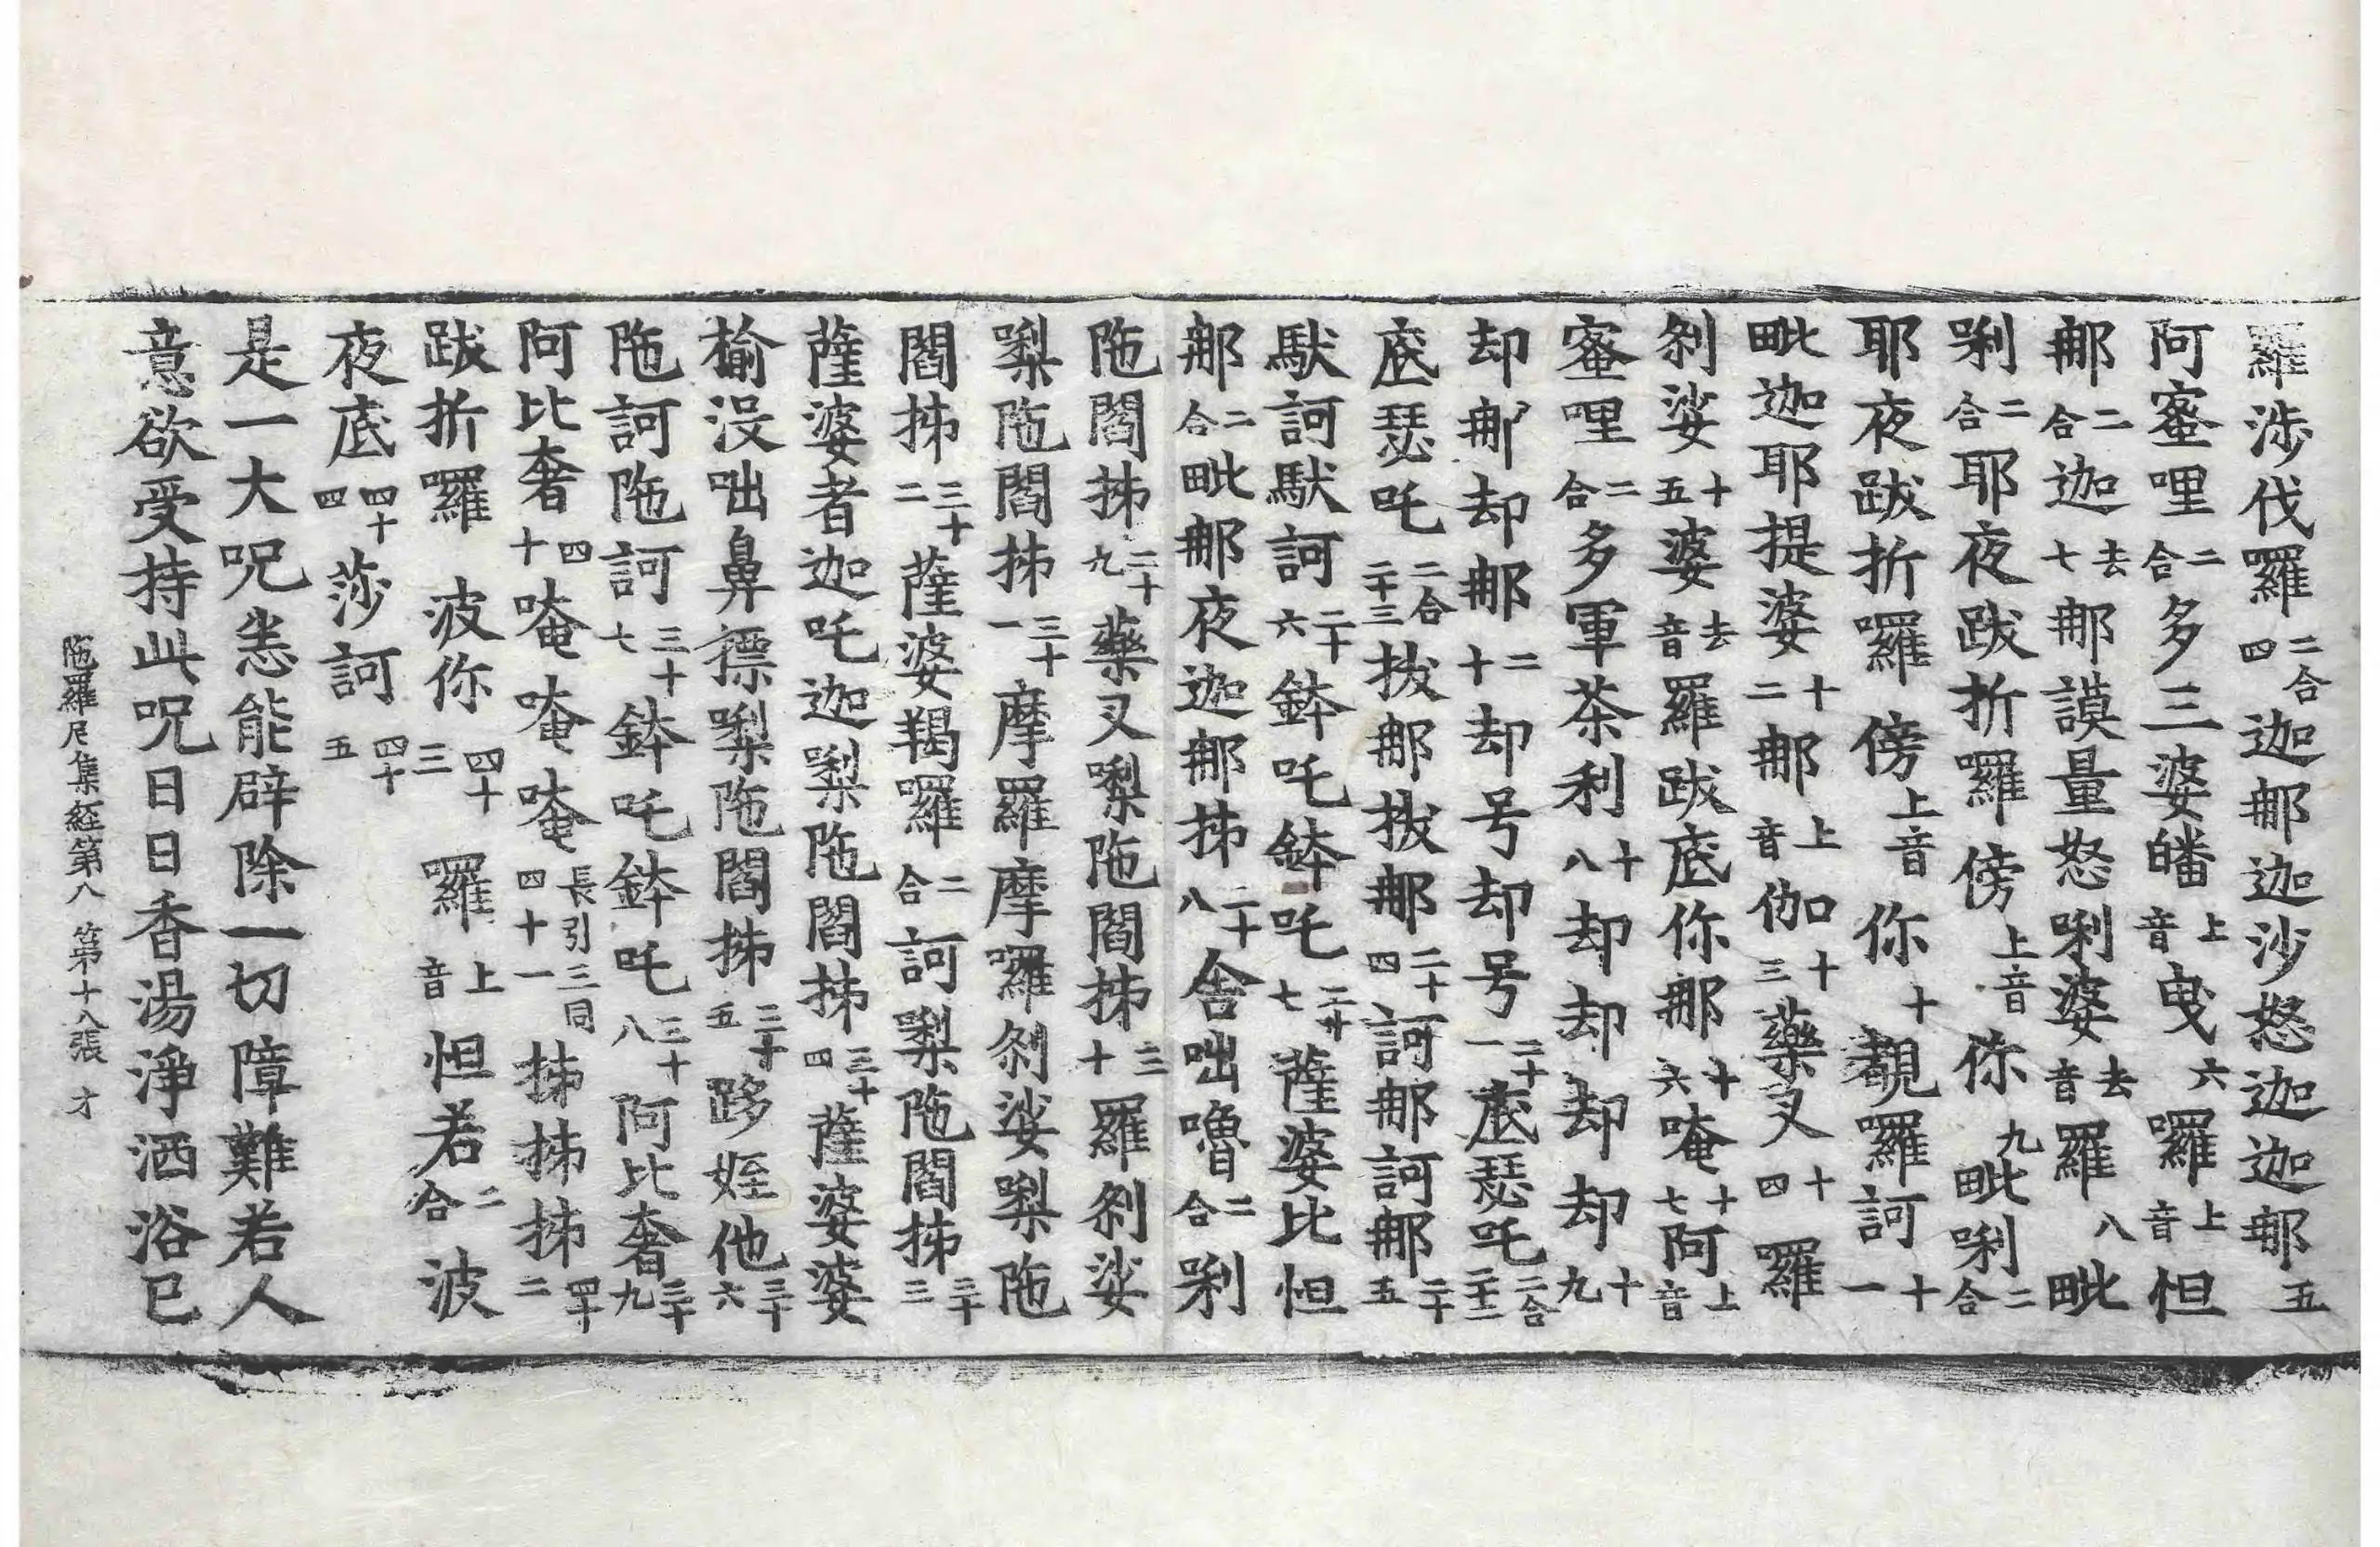 羅涉伐囉二合四迦那迦沙怒迦迦那五
阿蜜哩二合多三婆皤上音曳六囉上音怛
那二合迦去七那謨量怒唎婆去音羅八毗
唎二合耶夜跋折囉傍上音你九毗唎二合
耶夜跋折囉傍上音你十覩囉訶十一
毗迦耶提婆十二那上音伽十三藥叉十四囉
剎娑十五婆去音羅跋底你那十六唵十七阿上音
蜜哩二合多軍茶利十八却却却却十九
却那却那二十却号却号二十一底瑟吒二合二十二
底瑟吒二合二十三拔那拔那二十四訶那訶那二十五
馱訶馱訶二十六鉢吒鉢吒二十七薩婆比怛
那二合毗那夜迦那㧊二十八舍咄嚕二合唎
陁閻㧊二十九藥叉㗚陁閻㧊三十羅剎娑
㗚陁閻㧊三十一摩羅摩囉剎娑㗚陁
閻㧊三十二薩婆羯囉二合訶㗚陁閻㧊三十三
薩婆者迦吒迦㗚陁閻㧊三十四薩婆婆
榆沒咄鼻㗚陁閻㧊三十五跢姪他三十六
陁訶陁訶三十七鉢吒鉢吒三十八阿比奢三十九
阿比奢四十唵唵唵長引三同四十一㧊㧊㧊四十二
跋折囉波你四十三囉上音怛若二合波
夜底四十四莎訶四十五
是一大呪恙能辟除一切障難若人
意欲受持此呪日日香湯淨洒浴已
陁羅尼集経第八 第十八張 才